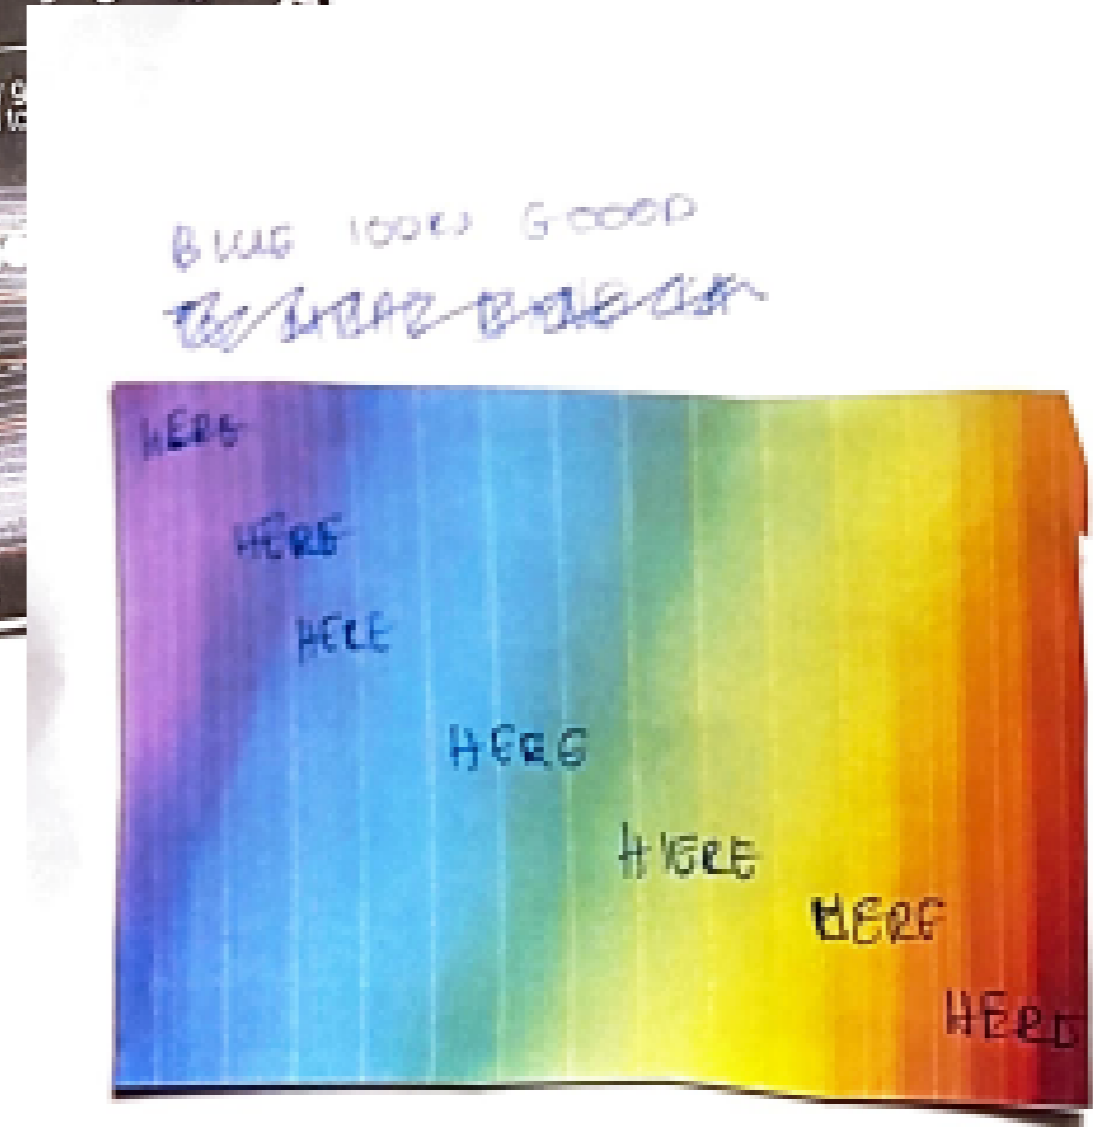 BLUE lOOKS GOOOD
HERE
HERE
HERE
HERE
HERE
HERE
HERE